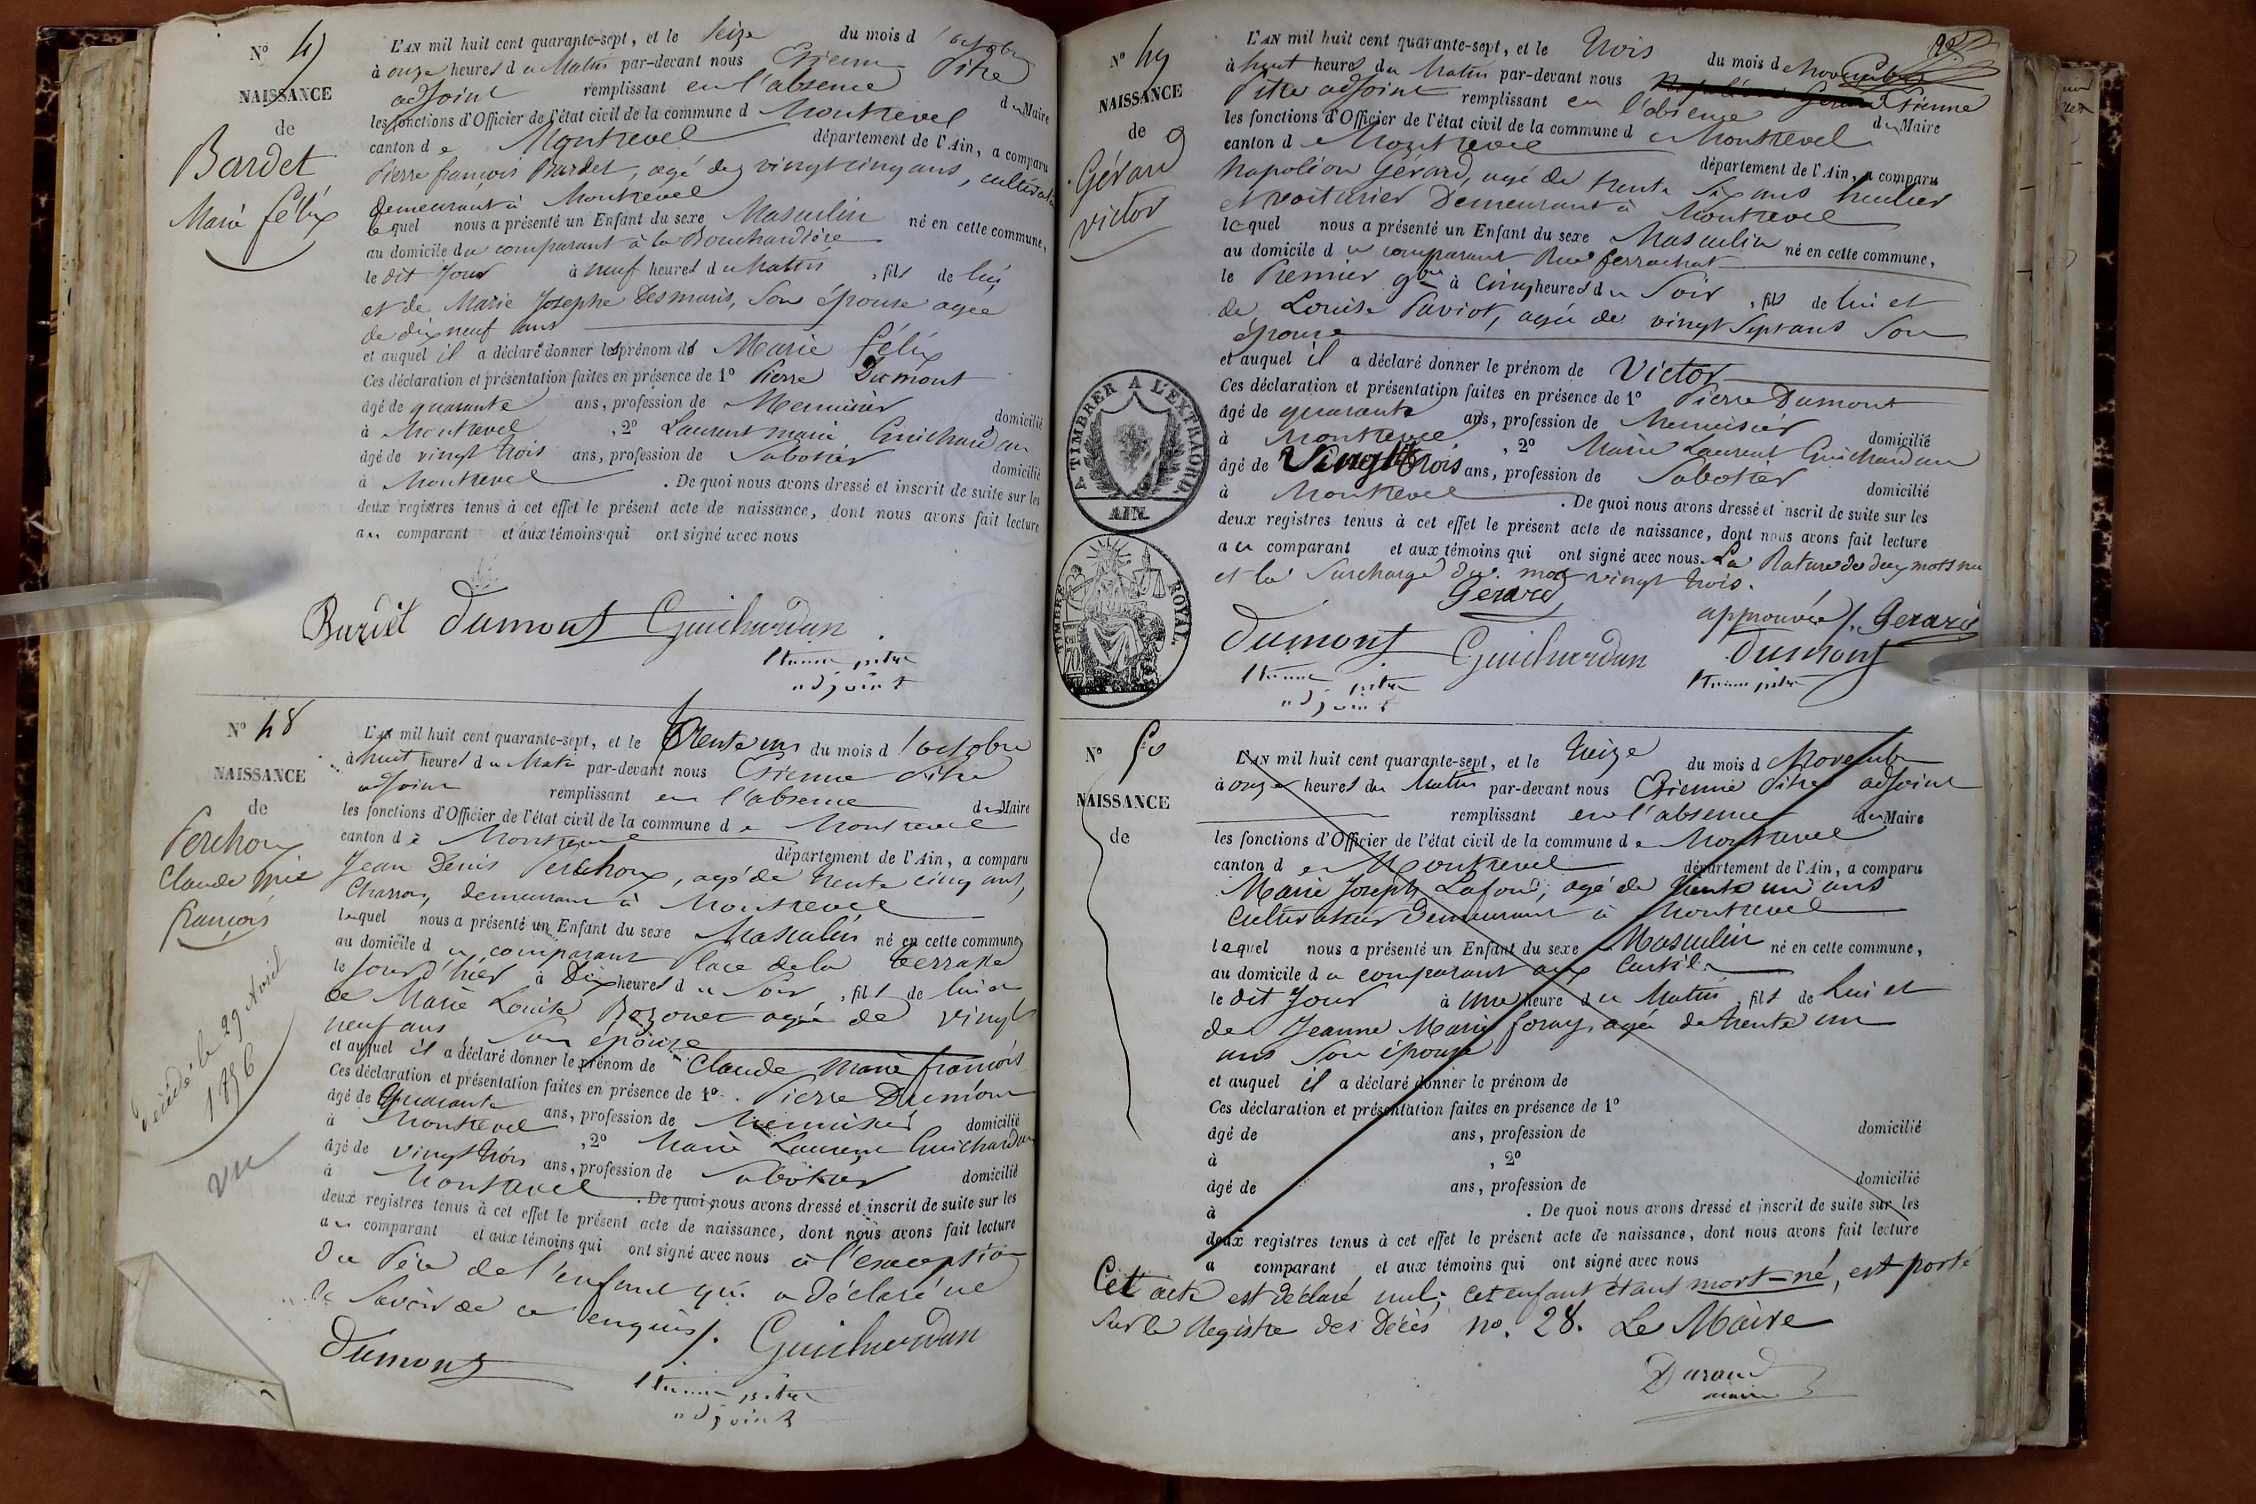 N° 47
NAISSANCE
de
Bardet
Marie félix
L'AN mil huit cent quarante-sept, et le seize du mois d'octobre
à onze heures du Matin par-devant nous Etienne Pitre
adjoint remplissant en l'absence du Maire
les fonctions d'Officier de l'état civil de la commune d Montrevel
canton de Montrevel département de l'Ain, a comparu
Pierre françois Bardet, agé de vingt cinq ans, cultivateur
demeurant à Montrevel
lequel nous a présenté un Enfant du sexe Masculin né en cette commune,
au domicile du comparant à la Bouchardière
le dit Jour à neuf heures du Matin, fils de lui,
et de Marie Josephe Desmaris, son épouse agée
de dix neuf ans
et auquel il a déclaré donner les prénom de Marie félix
Ces déclaration et présentation faites en présence de 1° Pierre Dumont
âgé de quarante ans, profession de Menuisier domicilié
à Montrevel, 2° Laurent marie Guichardan
âgé de vingt trois ans, profession de Sabotier domicilié
à Montrevel. De quoi nous avons dressé et inscrit de suite sur les
deux registres tenus à cet effet le présent acte de naissance, dont nous avons fait lecture
au comparant et aux témoins qui ont signé avec nous
Bardet Dumont Guichardan
Etienne pitre
adjoint
N° 48
NAISSANCE
de
Perchoux
Claude Marie
françois
Décédé le 29 Avril
1896
vu
L'AN mil huit cent quarante-sept, et le Trente un du mois d'octobre
à huit heures du Matin par-devant nous Etienne Pitre
adjoint remplissant en l'absence du Maire
les fonctions d'Officier de l'état civil de la commune de Montrevel
canton de Montrevel département de l'Ain, a comparu
Jean Denis Perchoux, agé de trente cinq ans,
Charron, demeurant à Montrevel
lequel nous a présenté un Enfant du sexe Masculin né en cette commune
au domicile du comparant Place de la terrasse
le Jour d'hier à Dix heures du Soir, fils de lui et
de Marie Louise Bozonet agée de vingt
neuf ans, son épouse
et auquel il a déclaré donner le prénom de Claude Marie françois
Ces déclaration et présentation faites en présence de 1° Pierre Dumont
âgé de Quarante ans, profession de Menuisier domicilié
à Montrevel, 2° Marie Laurent Guichardan
âgé de vingt trois ans, profession de Sabotier domicilié
à Montrevel. De quoi nous avons dressé et inscrit de suite sur les
deux registres tenus à cet effet le présent acte de naissance, dont nous avons fait lecture
au comparant et aux témoins qui ont signé avec nous à l'exception
du Père de l'enfant qui a déclaré ne
le savoir de ce enquis/.
Dumont Guichardan
Etienne pitre
adjoint
N° 49
NAISSANCE
de
Gérard
victor
A TIMBRER A L'EXTRAORD.
AIN.
TIMBRE ROYAL
L'AN mil huit cent quarante-sept, et le trois du mois de Novembre
à huit heures du Matin par-devant nous Etienne
Pitre adjoint remplissant en l'absence du Maire
les fonctions d'Officier de l'état civil de la commune de Montrevel
canton de Montrevel département de l'Ain, a comparu
Napoléon Gérard, agé de trente six ans huilier
et voiturier Demeurant à Montrevel
lequel nous a présenté un Enfant du sexe Masculin né en cette commune,
au domicile du comparant Rue ferrachat
le Premier 9bre à Cinq heures du Soir, fils de lui et
de Louise Paviot, agée de vingt sept ans son
épouse
et auquel il a déclaré donner le prénom de Victor
Ces déclaration et présentation faites en présence de 1° Pierre Dumont
âgé de quarante ans, profession de Menuisier domicilié
à Montrevel, 2° Marie Laurent Guichardan
âgé de Vingt trois ans, profession de Sabotier domicilié
à Montrevel. De quoi nous avons dressé et inscrit de suite sur les
deux registres tenus à cet effet le présent acte de naissance, dont nous avons fait lecture
au comparant et aux témoins qui ont signé avec nous. La Rature de deux mots nu
et la surcharge du mot vingt trois.
Gerard approuvée/. Gerard
Dumont Guichardan Dumont
Etienne pitre Etienne pitre
adjoint
N° 50
NAISSANCE
de
L'AN mil huit cent quarante-sept, et le treize du mois d Novembre
à onze heures du Matin par-devant nous Etienne Pitre adjoint
remplissant en l'absence du Maire
les fonctions d'Officier de l'état civil de la commune de Montrevel
canton de Montrevel département de l'Ain, a comparu
Marie Joseph Lafond, agé de trente un ans
Cultivateur Demeurant à Montrevel
lequel nous a présenté un Enfant du sexe Masculin né en cette commune,
au domicile du comparant aux
le dit Jour à une heure du Matin, fils de lui et
de Jeanne Marie foray, agée de trente un
ans son épouse
et auquel il a déclaré donner le prénom de
Ces déclaration et présentation faites en présence de 1°
âgé de ans, profession de domicilié
à , 2°
âgé de ans, profession de domicilié
à . De quoi nous avons dressé et inscrit de suite sur les
deux registres tenus à cet effet le présent acte de naissance, dont nous avons fait lecture
a comparant et aux témoins qui ont signé avec nous
Cet acte est déclaré nul; cet enfant étant mort-né, est porté
sur le Registre des Décès no. 28. Le Maire
Durand
maire